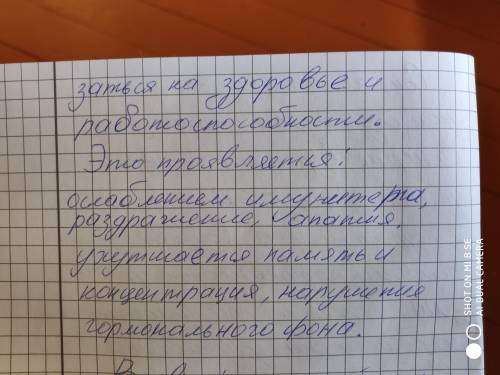 заться на здоровье и
работоспособности.
Это проявляется:
ослаблением имунитета,
раздражение, апатия,
ухутшается память и
концентрация, нарушения
гормонального фона.
SHOT ON MI 8 SE
AI DUAL CAMERA